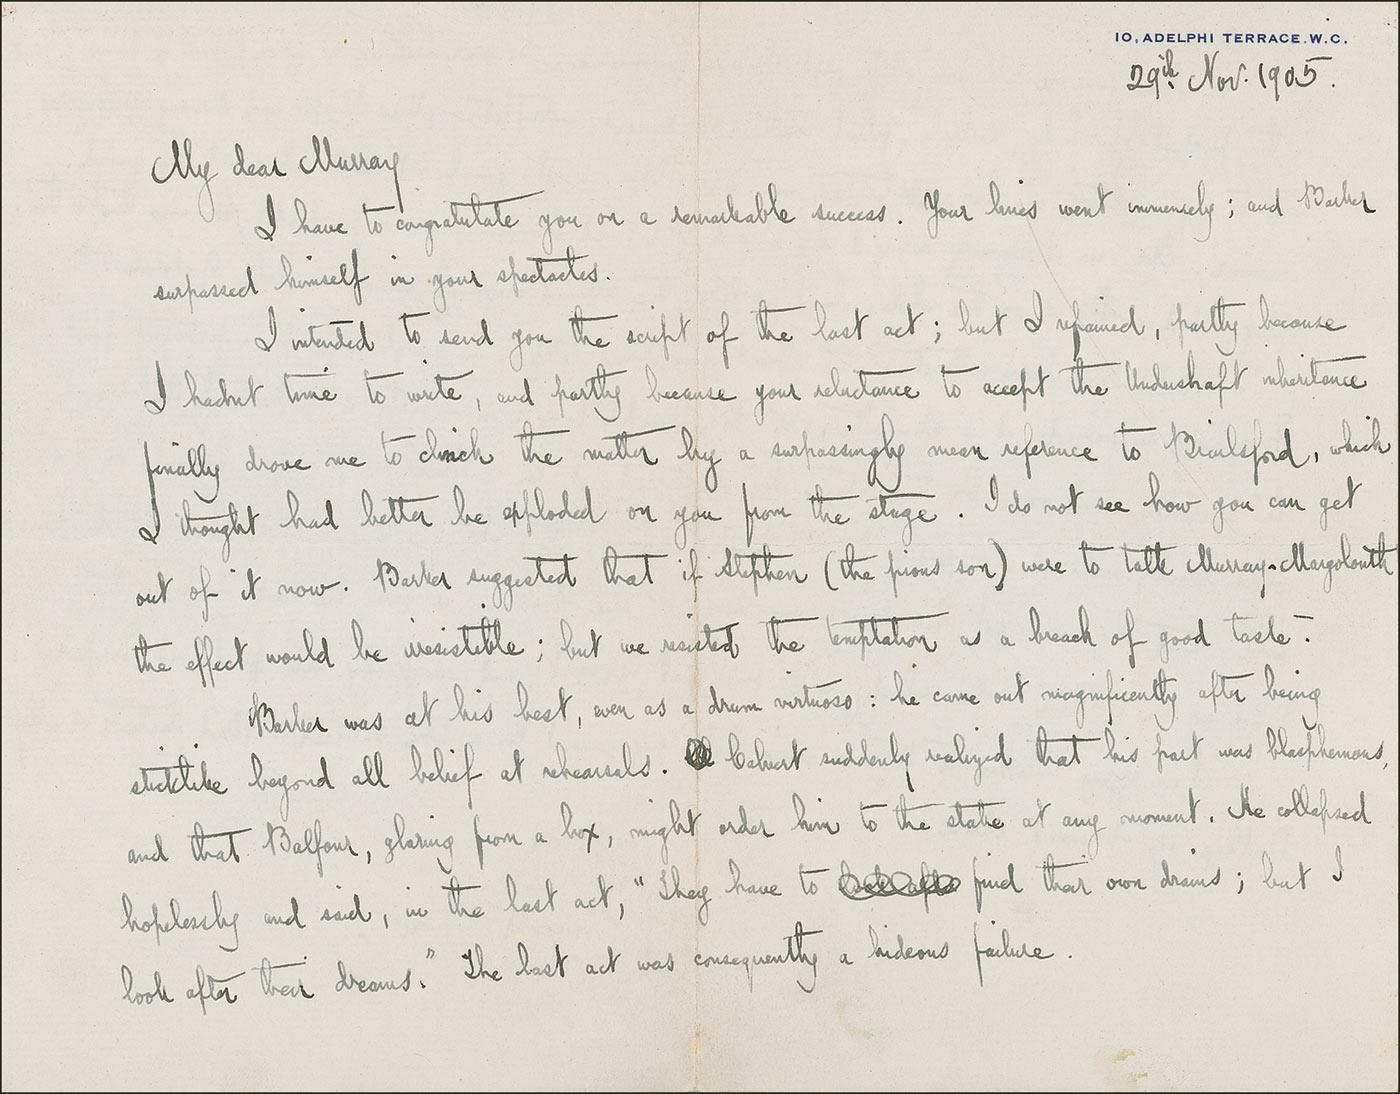 10, ADELPHI TERRACE. W.C.
29th Nov. 1905.
My dear Murray
I have to congratulate you on a remarkable success. Your lines went immensely; and Barker
surpassed himself in your spectacles.
I intended to send you the script of the last act; but I refrained, partly because
I hadnt time to write, and partly because your reluctance to accept the Undershaft inheritance
finally drove me to clinch the matter by a surpassingly mean reference to Brailsford, which
I thought had better be exploded on you from the stage. I do not see how you can get
out of it now. Barker suggested that if Stephen (the pious son) were to talk Murray-Margolouth
the effect would be irresistible; but we resisted the temptation as a breach of good taste.
Barker was at his best, even as a drum virtuoso: he came out magnificently after being
sticklike beyond all belief at rehearsals. Calvert suddenly realized that his part was blasphemous,
and that Balfour, glaring from a box, might order him to the stake at any moment. He collapsed
hopelessly and said, in the last act, "They have to find their own drains; but I
look after their dreams." The last act was consequently a hideous failure.